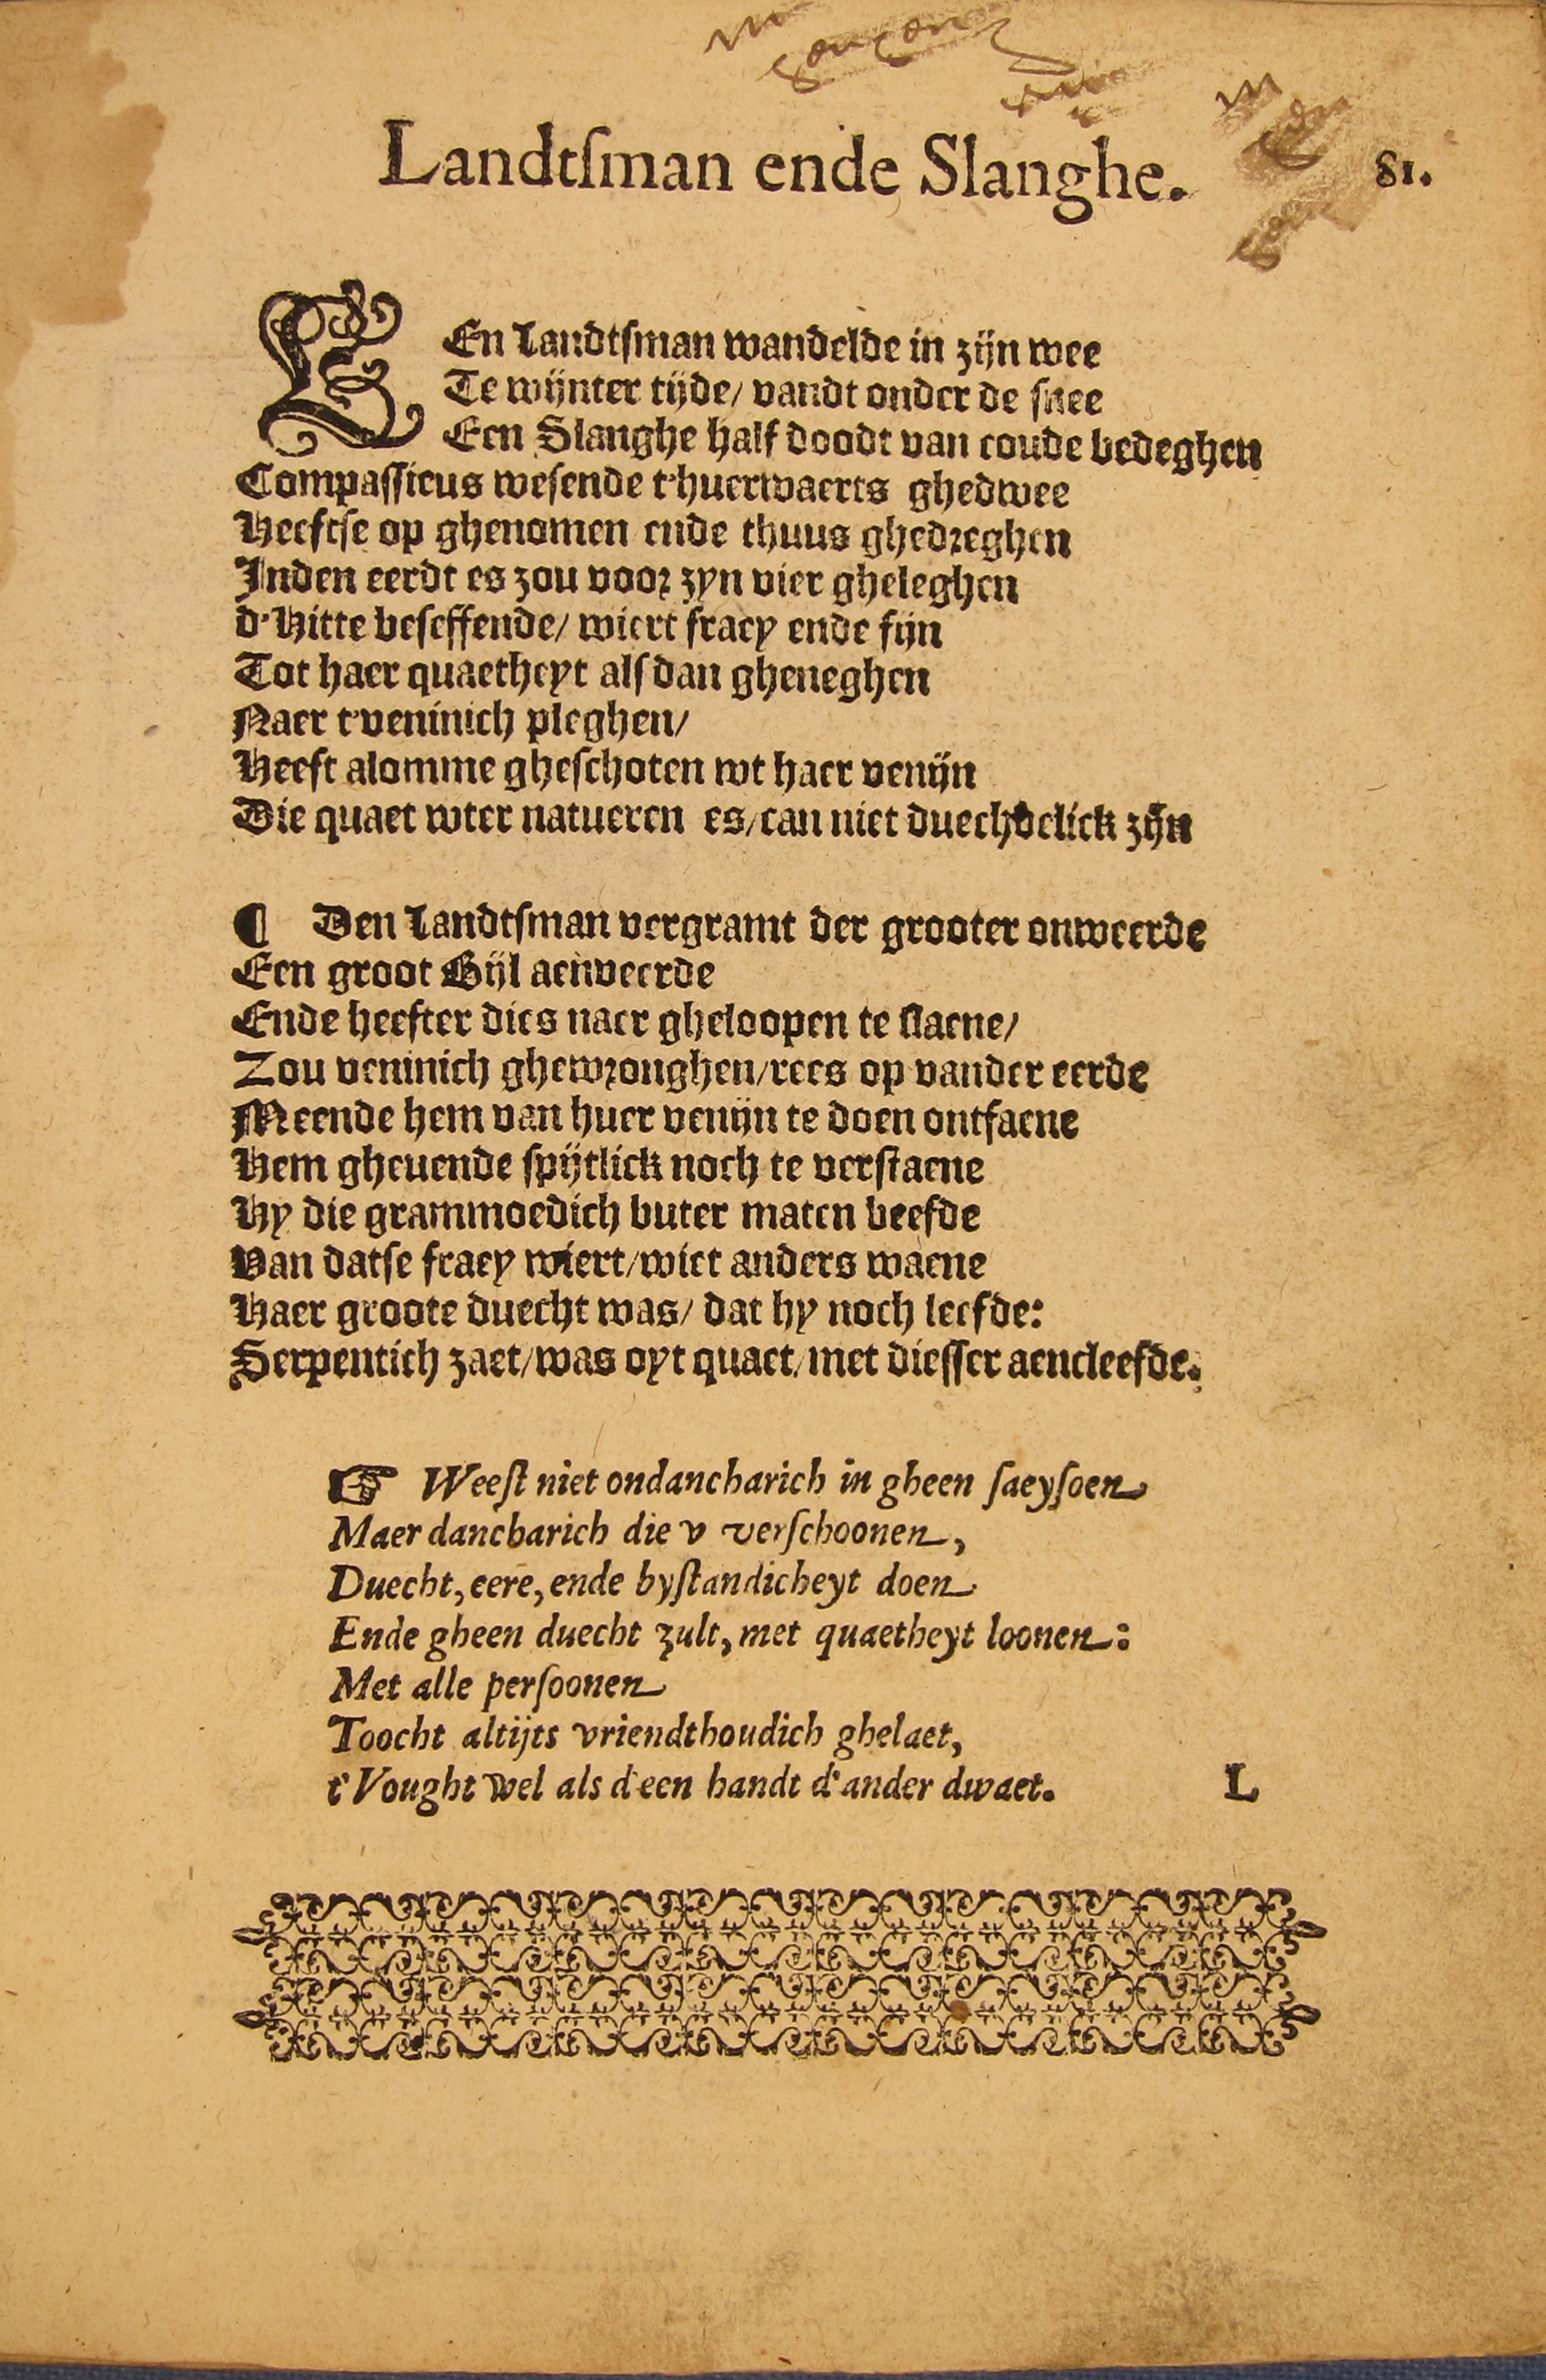 Landtſman ende Slanghe.
81.
EEn Landtſman wandelde in zijn wee
Te wijnter tijde/ vandt onder de ſnee
Een Slanghe half doodt van coude bedeghen
Compaſſieus weſende t'huerwaerts ghedwee
Heeftſe op ghenomen ende thuus ghedreghen
Inden eerdt es zou voor zyn vier gheleghen
d'Hitte beſeffende/ wiert fraey ende fijn
Tot haer quaetheyt alſdan gheneghen
Naer t'veninich pleghen/
Heeft alomme gheſchoten wt haer venijn
Die quaet wter natueren es/can niet duechdelick zijn
¶ Den Landtſman vergramt der grooter onweerde
Een groot Bijl aenveerde
Ende heefter dies naer gheloopen te ſlaene/
Zou veninich ghewronghen/rees op vander eerde
Meende hem van huer venijn te doen ontfaene
Hem gheuende ſpijtlick noch te verſtaene
Hy die grammoedich buter maten beefde
Van datſe fraey wiert/wiet anders waene
Haer groote duecht was/ dat hy noch leefde:
Serpentich zaet/was oyt quaet/met dieſſer aencleefde.
☞ Weeſt niet ondancbarich in gheen ſaeyſoen
Maer dancbarich die v verſchoonen,
Duecht, eere, ende byſtandicheyt doen
Ende gheen duecht zult, met quaetheyt loonen:
Met alle perſoonen
Toocht altijts vriendthoudich ghelaet,
t'Vought wel als d'een handt d'ander dwaet.
L